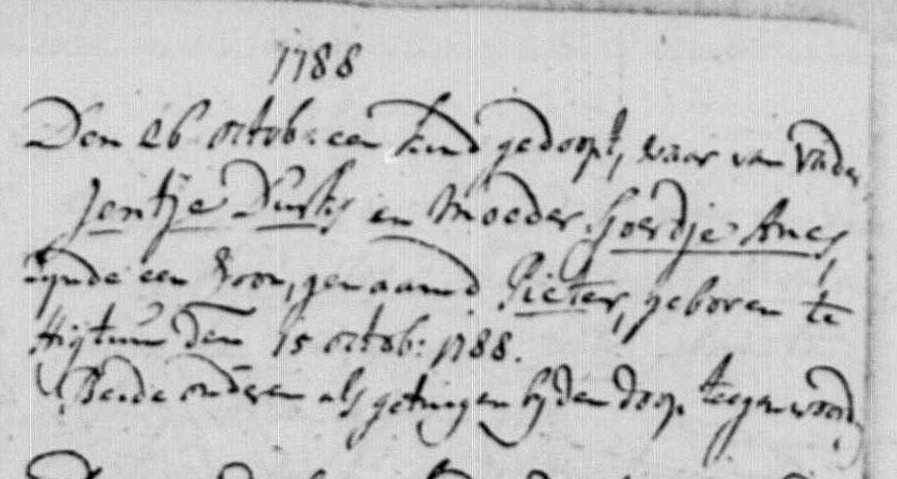 1788
Den 26 octob: een kind gedoopt, waar van Vader
Jentje Durks en Moeder Goerdje Anes,
zijnde een Zoon, genaamd Pieter, geboren te
Hijtum den 15 octob: 1788.
Beide ouderen als getuigen bij den doop teegenwoord